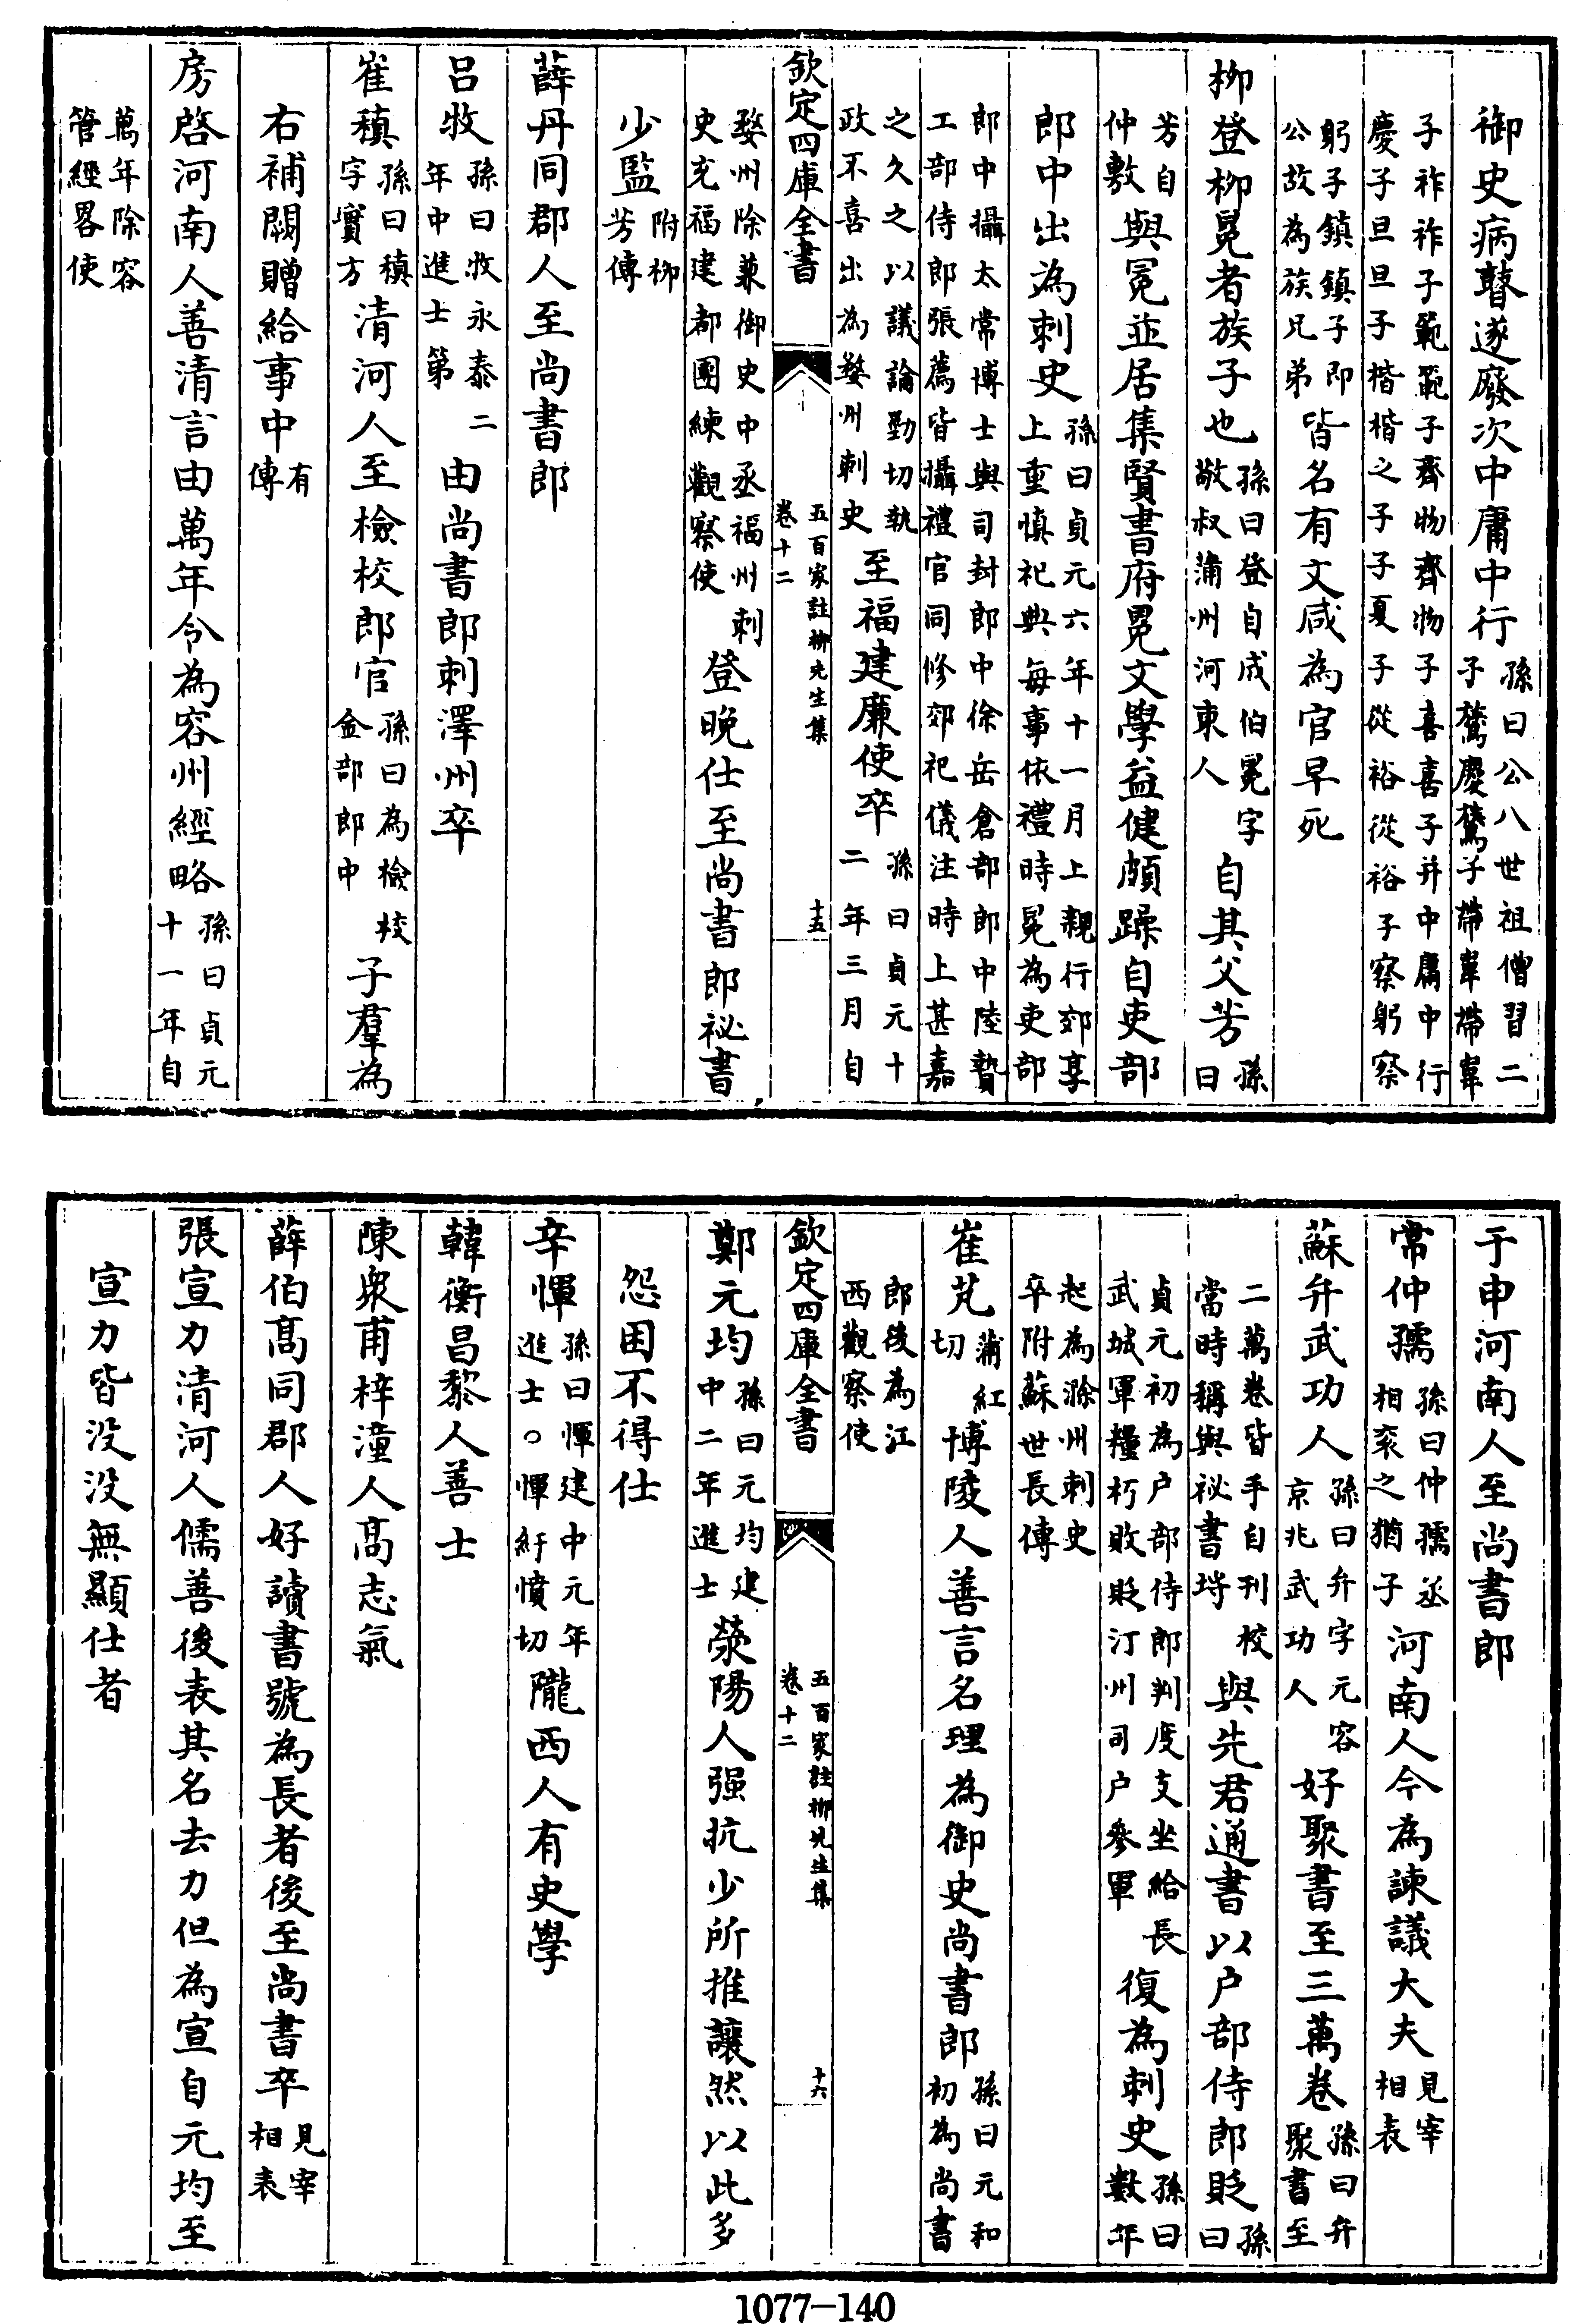 御史病瞽遂廢次中庸中行孫曰公八世祖僧習二子鷟慶鷟子帶韋帶韋
子祚祚子範範子齊物齊物子喜喜子并中庸中行慶子旦旦子楷楷之子子夏子從裕從裕子察躬察
躬子鎮鎮子即公故為族兄弟皆名有文咸為官早死
柳登柳冕者族子也孫曰登自成伯冕字敬叔蒲州河東人自其父芳孫曰
芳自仲敷與冕並居集賢書府冕文學益健頗躁自吏部
郎中出為刺史孫曰貞元六年十一月上親行郊享上重慎祀典每事依禮時冕為吏部
郎中攝太常博士與司封郎中徐岳倉部郎中陸贄工部侍郎張薦皆攝禮官同修郊祀儀注時上甚嘉
之久之以議論勁切執政不喜出為婺州刺史至福建廉使卒孫曰貞元十二年三月自
欽定四庫全書 五百家註柳先生集 卷十二 十五
婺州除兼御史中丞福州刺史充福建都團練觀察使登晚仕至尚書郎祕書
少監附柳芳傳
薛丹同郡人至尚書郎
呂牧孫曰牧永泰二年中進士第由尚書郎刺澤州卒
崔稹孫曰稹字實方清河人至檢校郎官孫曰為檢校金部郎中子羣為
右補闕贈給事中有傳
房啓河南人善清言由萬年令為容州經略孫曰貞元十一年自
萬年除容管經畧使
于申河南人至尚書郎
常仲孺孫曰仲孺丞相衮之猶子河南人今為諫議大夫見宰相表
蘇弁武功人孫曰弁字元容京兆武功人好聚書至三萬卷孫曰弁聚書至
二萬卷皆手自刊校當時稱與祕書埒與先君通書以户部侍郎貶孫曰
貞元初為户部侍郎判度支坐給長武城軍糧朽敗貶汀州司户參軍復為刺史孫曰數年
起為滁州刺史卒附蘇世長傳
崔芃蒲紅切博陵人善言名理為御史尚書郎孫曰元和初為尚書
郎後為江西觀察使
欽定四庫全書 五百家註柳先生集 卷十二 十六
鄭元均孫曰元均建中二年進士滎陽人强抗少所推讓然以此多
怨困不得仕
辛惲孫曰惲建中元年進士○惲紆憤切隴西人有史學
韓衡昌黎人善士
陳衆甫梓潼人髙志氣
薛伯髙同郡人好讀書號為長者後至尚書卒見宰相表
張宣力清河人儒善後表其名去力但為宣自元均至
宣力皆没没無顯仕者
1077—140